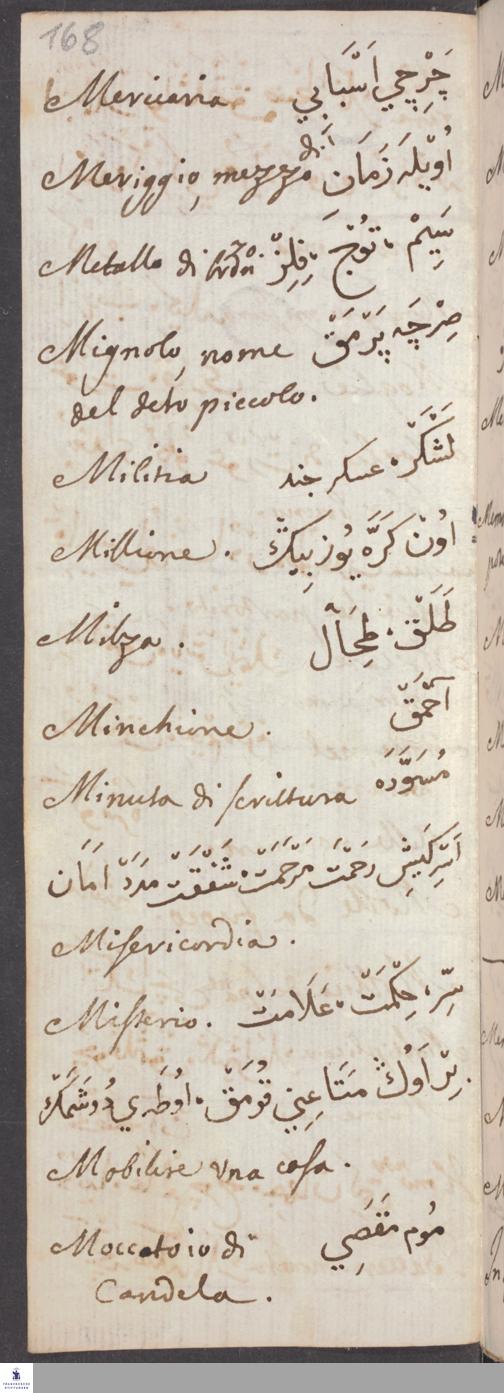 168
Merciaria چَرْچِي اَسْبَابِي
Meriggio, mezzo dì اُويْلَه زَمَان
Metallo di سِيمْ، تُوُجْ، فِلِزّ
Mignolo, nome صِرْچَه پَرْمَقْ
del deto piccolo.
Militia لَشْكَرْ، عسكر جند
Millione. اوُنْ كَرَّه يُوز بِيكْ
Milza. طَلَقْ، طِحَالْ
Minchione. اَحْمَقْ
Minuta di scrittura مُسَوَّدَه
اَسِرْكَيِشْ رحْمَتْ مَرْحَمَتْ، شَفْقَتْ مَدَدْ اَمَان
Misericordia.
Misterio. سِرّ، حِكْمَتْ، عَلَامَتْ
بِرْ اَوُكْ مَتَاعِنِي قُومَقْ، اوُطَه يِ دُوشَمَكْ
Mobilire una casa.
Moccatoio di مُوم مَقَصِي
Candela.
FRANCKESCHE STIFTUNGEN